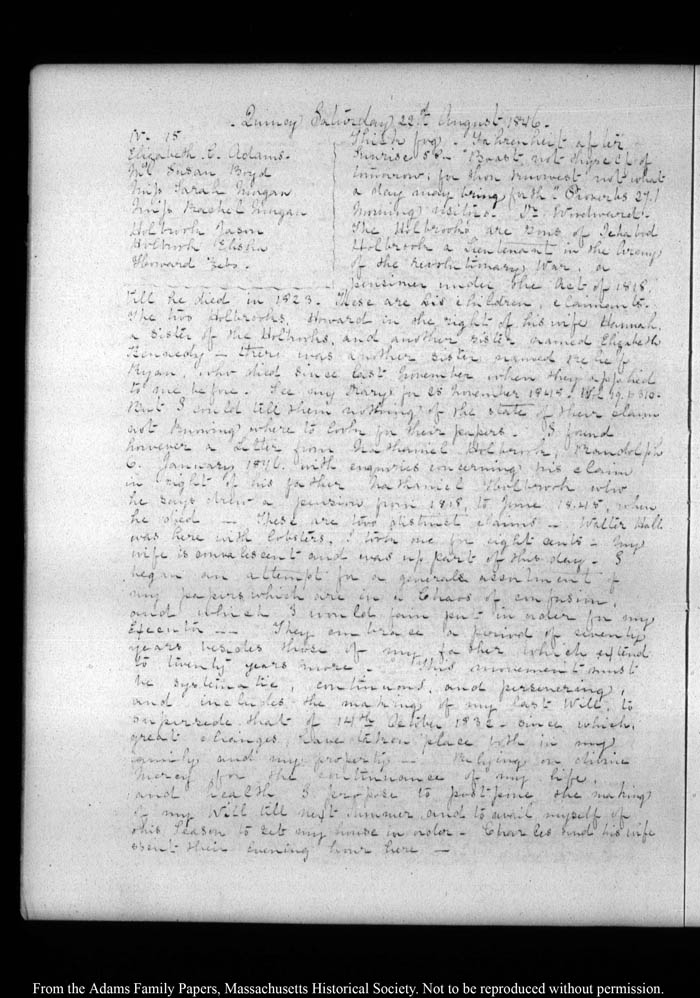 Quincy Saturday 22d. August 1846.
IV. 15
Elizabeth C. Adams.
Mrs Susan Boyd
Miss Sarah Morgan
Miss Rachel Morgan
Holbrook Jason
Holbrook Elisha
Howard Zebo.
Thick fog. Fahrenheit after
Sunrise 58 "Boast not thyself of
tomorrow; for thou knowest not what
a day may bring forth" Proverbs 27.1
Morning visitors. Dr. Woodward.
The Holbrooks are Sons of Ichabod
Holbrook a Lieutenant in the Army
of the revolutionary War, a
pensioner under the Act of 1818,
till he died in 1823. These are his children, claimants.
The two Holbrooks, Howard in the right of his wife Hannah,
a sister of the Holbrooks, and another sister named Elizabeth
Kennedy— there was another sister named Relief
Ryan, who died since last November when they applied
to me before. See my Diary for 25 November 1845.
But I could tell them nothing of the state of their claim
not knowing where to look for their papers. I found
however a Letter from Nathaniel Holbrook, Randolph
6. January 1846. with enquiries concerning his claim
in right of his father Nathaniel Holbrook who
he says drew a pension from 1818, to June 1845, when
he died — These are two distinct claims — Walter Hall
was here with lobsters, I took one for eight cents — My
wife is convalescent and was up part of this day. I
began an attempt for a general assortment of
my papers which are in a Chaos of confusion,
and which I would fain put in order for my
Executor — They embrace a period of seventy
years besides those of my father which extend
to twenty years more. This movement must
be systematic, continuous, and persevering,
and includes the making of my last Will, to
supersede that of 14th October 1832 since which,
great changes have taken place both in my
family and my property — Relying on divine
Mercy for the continuance of my life,
and health I propose to postpone the making
of my Will till next Summer and to avail myself of
this Season to set my house in order — Charles and his wife
spent their evening hour here —
From the Adams Family Papers, Massachusetts Historical Society. Not to be reproduced without permission.